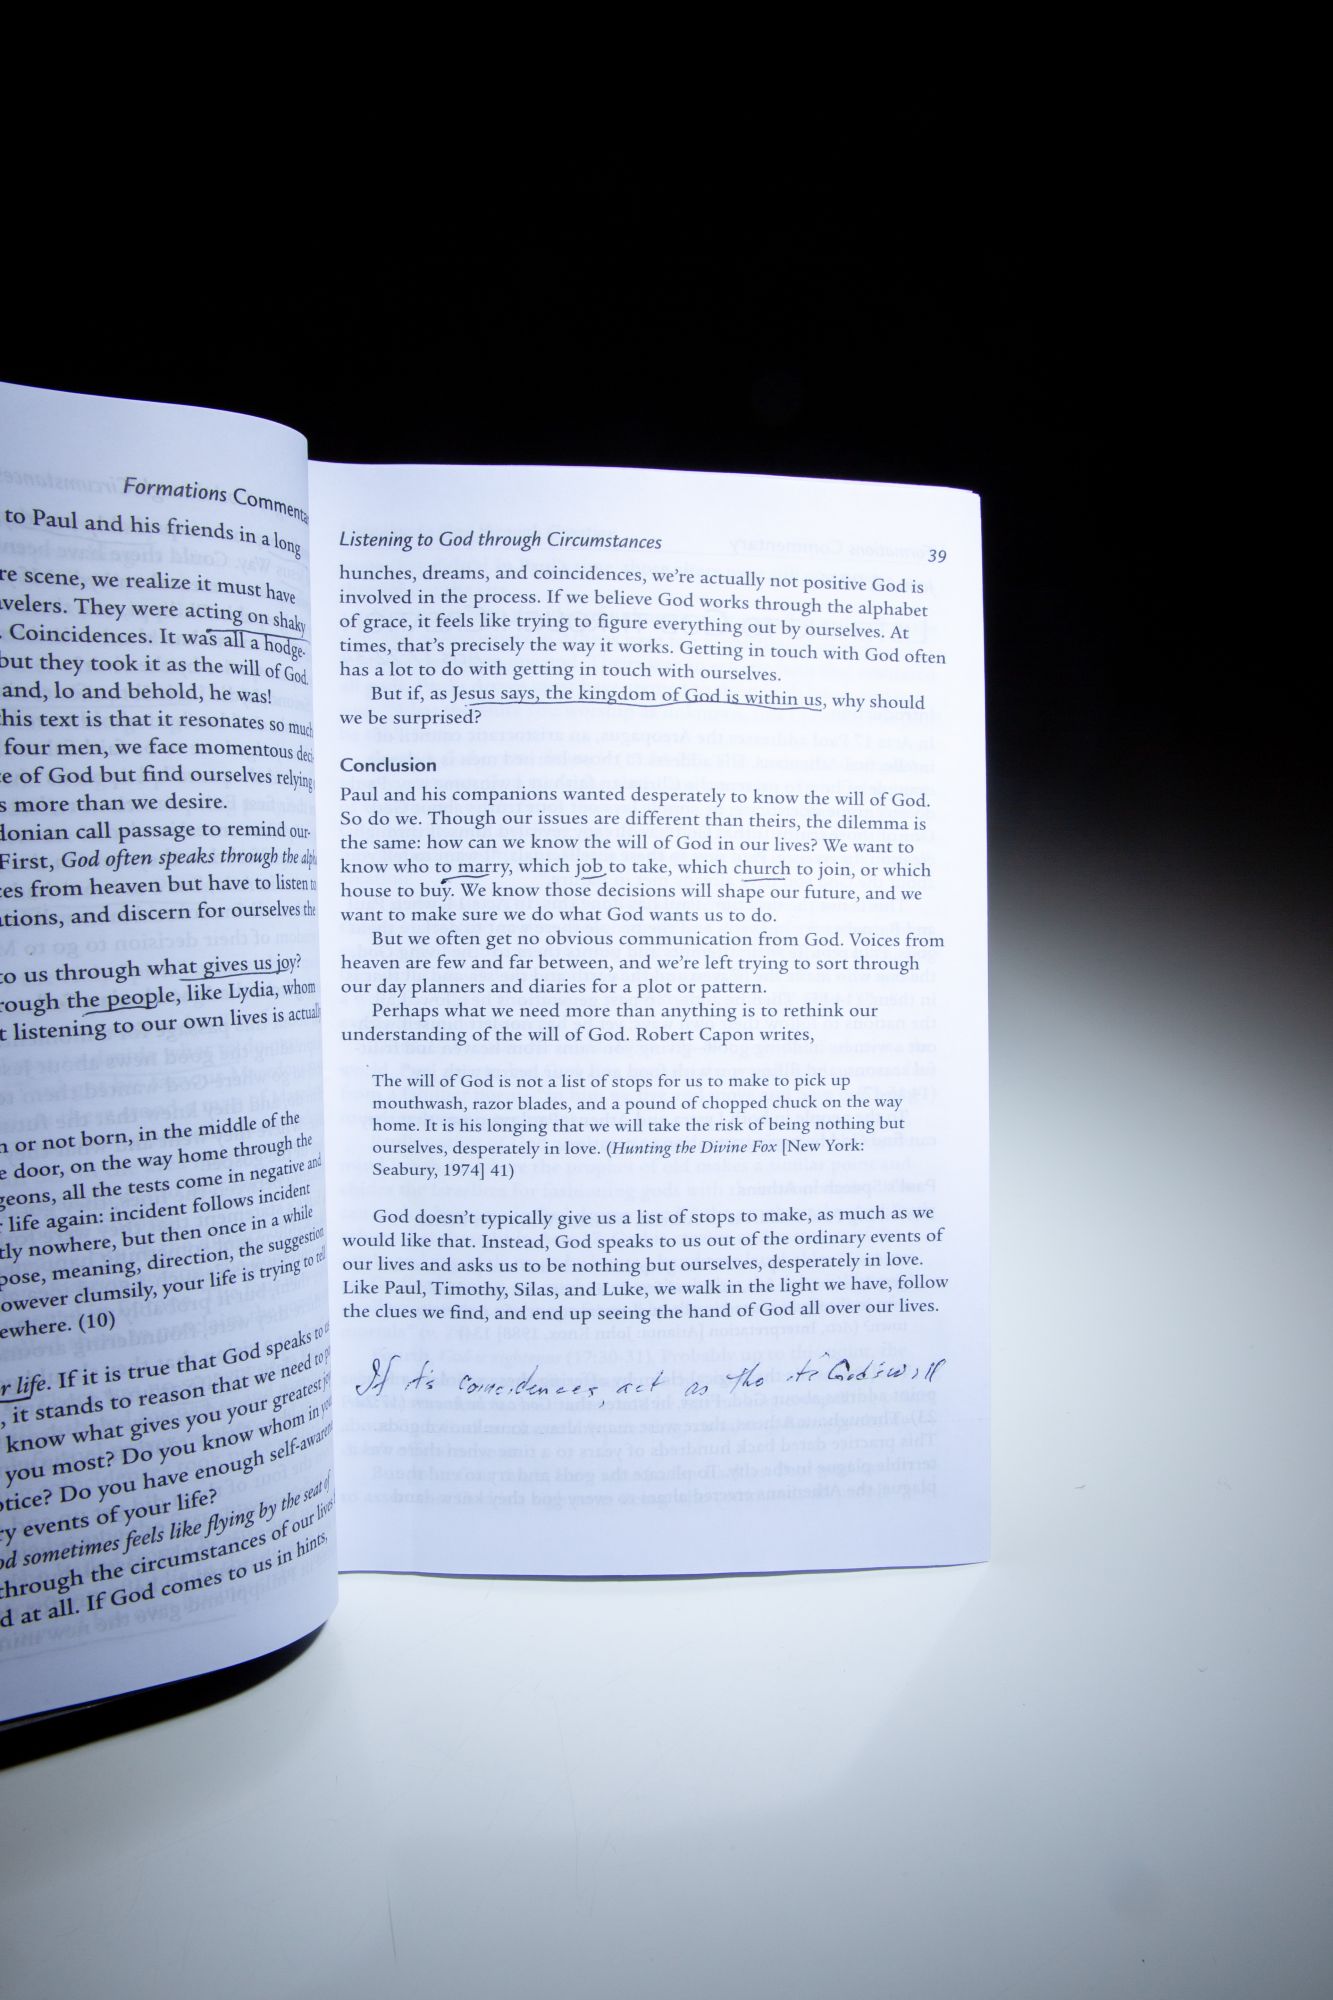 Formations Commenta
to Paul and his friends in a long
re scene, we realize it must have
avelers. They were acting on shaky
. Coincidences. It was all a hodge-
but they took it as the will of God.
and, lo and behold, he was!
this text is that it resonates so much
four men, we face momentous deci-
e of God but find ourselves relying
s more than we desire.
donian call passage to remind our-
First, God often speaks through the alph
ces from heaven but have to listen to
ations, and discern for ourselves the
to us through what gives us joy?
rough the people, like Lydia, whom
t listening to our own lives is actually
n or not born, in the middle of the
e door, on the way home through the
geons, all the tests come in negative and
r life again: incident follows incident
tly nowhere, but then once in a while
pose, meaning, direction, the suggestion
owever clumsily, your life is trying to tell
ewhere. (10)
r life. If it is true that God speaks to
, it stands to reason that we need to
know what gives you your greatest joy
you most? Do you know whom in you
otice? Do you have enough self-aware
ry events of your life?
od sometimes feels like flying by the seat of
through the circumstances of our lives
d at all. If God comes to us in hints,
Listening to God through Circumstances 39
hunches, dreams, and coincidences, we're actually not positive God is
involved in the process. If we believe God works through the alphabet
of grace, it feels like trying to figure everything out by ourselves. At
times, that's precisely the way it works. Getting in touch with God often
has a lot to do with getting in touch with ourselves.
But if, as Jesus says, the kingdom of God is within us, why should
we be surprised?
Conclusion
Paul and his companions wanted desperately to know the will of God.
So do we. Though our issues are different than theirs, the dilemma is
the same: how can we know the will of God in our lives? We want to
know who to marry, which job to take, which church to join, or which
house to buy. We know those decisions will shape our future, and we
want to make sure we do what God wants us to do.
But we often get no obvious communication from God. Voices from
heaven are few and far between, and we're left trying to sort through
our day planners and diaries for a plot or pattern.
Perhaps what we need more than anything is to rethink our
understanding of the will of God. Robert Capon writes,
The will of God is not a list of stops for us to make to pick up
mouthwash, razor blades, and a pound of chopped chuck on the way
home. It is his longing that we will take the risk of being nothing but
ourselves, desperately in love. (Hunting the Divine Fox [New York:
Seabury, 1974] 41)
God doesn't typically give us a list of stops to make, as much as we
would like that. Instead, God speaks to us out of the ordinary events of
our lives and asks us to be nothing but ourselves, desperately in love.
Like Paul, Timothy, Silas, and Luke, we walk in the light we have, follow
the clues we find, and end up seeing the hand of God all over our lives.
If it's coincidences, act as tho it's God's will